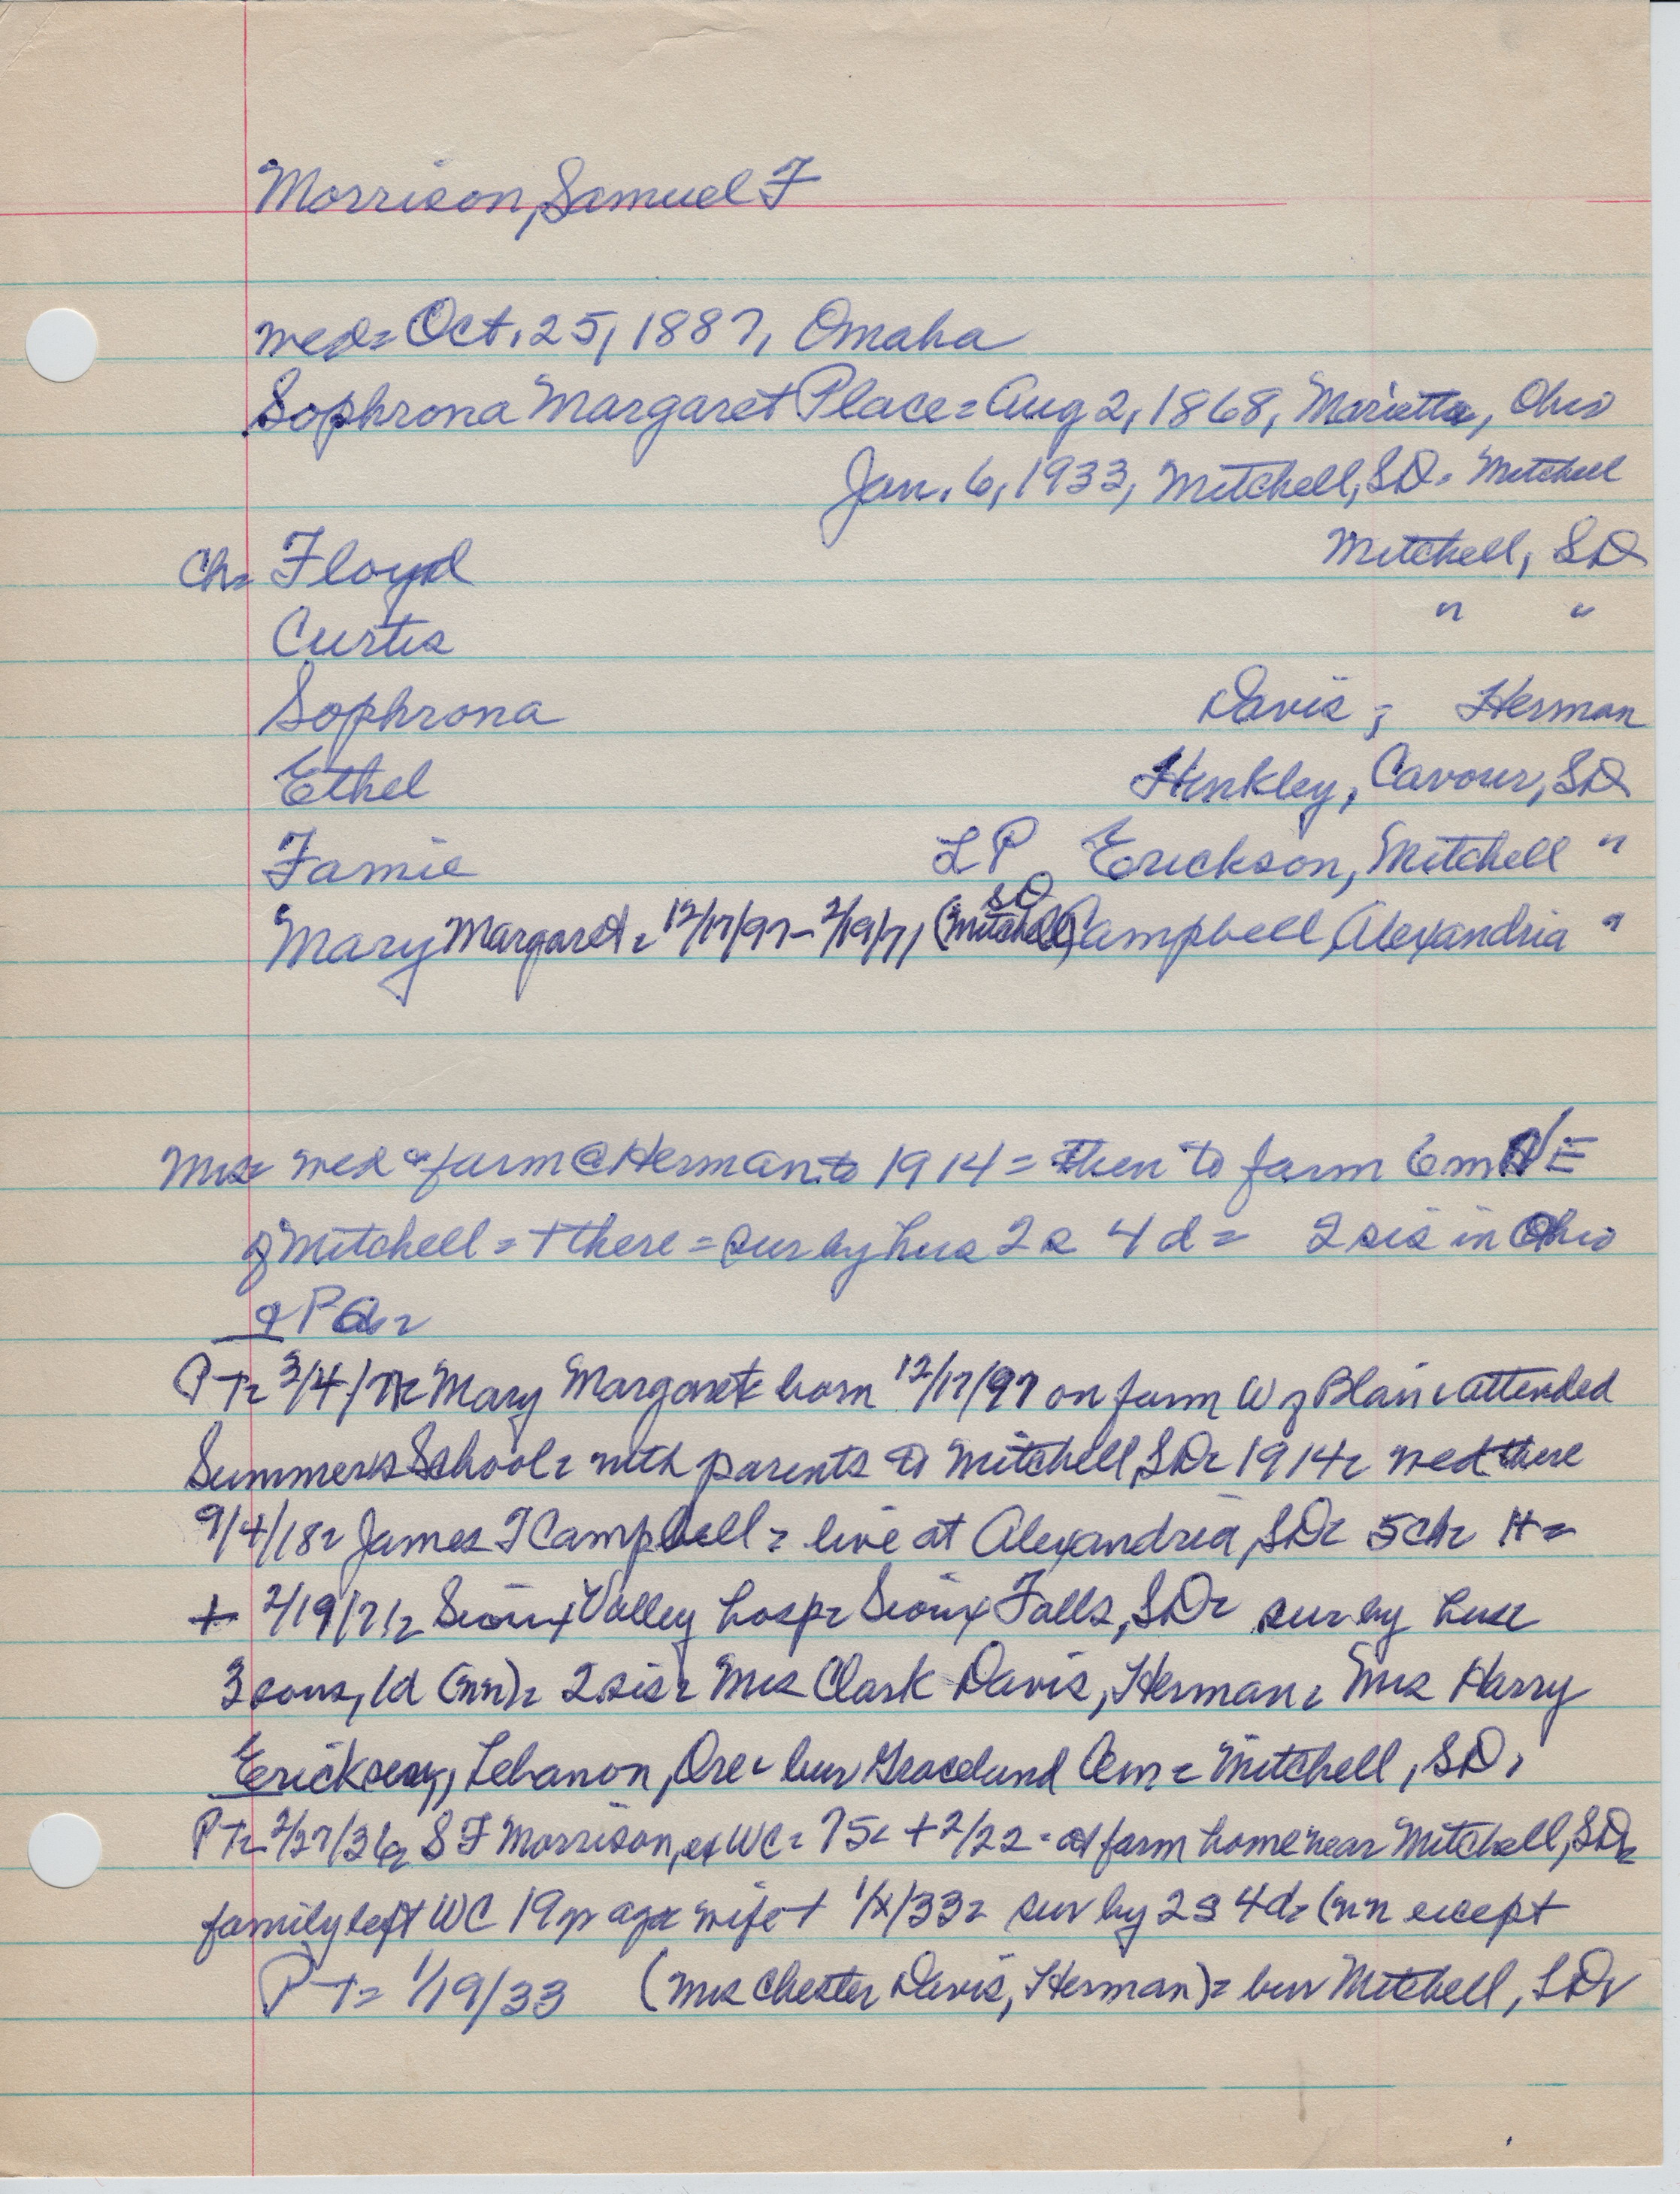 Morrison, Samuel F
wed= Oct. 25, 1887, Omaha
Sophrona Margaret Place = Aug 2, 1868, Marietta, Ohio
Jan. 6, 1933, Mitchell, SD. Mitchell
Ch= Floyd Mitchell, SD
Curtis " "
Sophrona Davis, Herman
Ethel Hinkley, Cavour, SD
Famie L P Erickson, Mitchell "
Mary Margaret = 12/17/97 - 2/19/71 (Mitchell SD) Campbell, Alexandria "
Mrs= wed & farm @ Herman to 1914 = then to farm 6 m NE
of Mitchell = + there = sur by hus 2 s 4 d = 2 sis in Ohio
& Pa=
PT= 3/4/71= Mary Margaret born 12/17/97 on farm W of Blair = attended
Summers School = with parents to Mitchell, SD= 1914= wed there
9/4/18= James T Campbell = live at Alexandria, SD= 5 ch= H=
+ 2/19/71= Sioux Valley hosp= Sioux Falls, SD= sur by hus=
3 sons, 1d (nn)= 2 sis= Mrs Clark Davis, Herman= Mrs Harry
Erickson, Lebanon, Ore= bur Graceland Cem= Mitchell, SD.
PT= 2/27/36= S F Morrison, ex WC= 75= + 2/22 = at farm home near Mitchell, SD=
family left WC 19 yr ago= wife + 1/x/33= sur by 2 s 4 d= (nn except
PT= 1/19/33 (Mrs Chester Davis, Herman)= bur Mitchell, SD